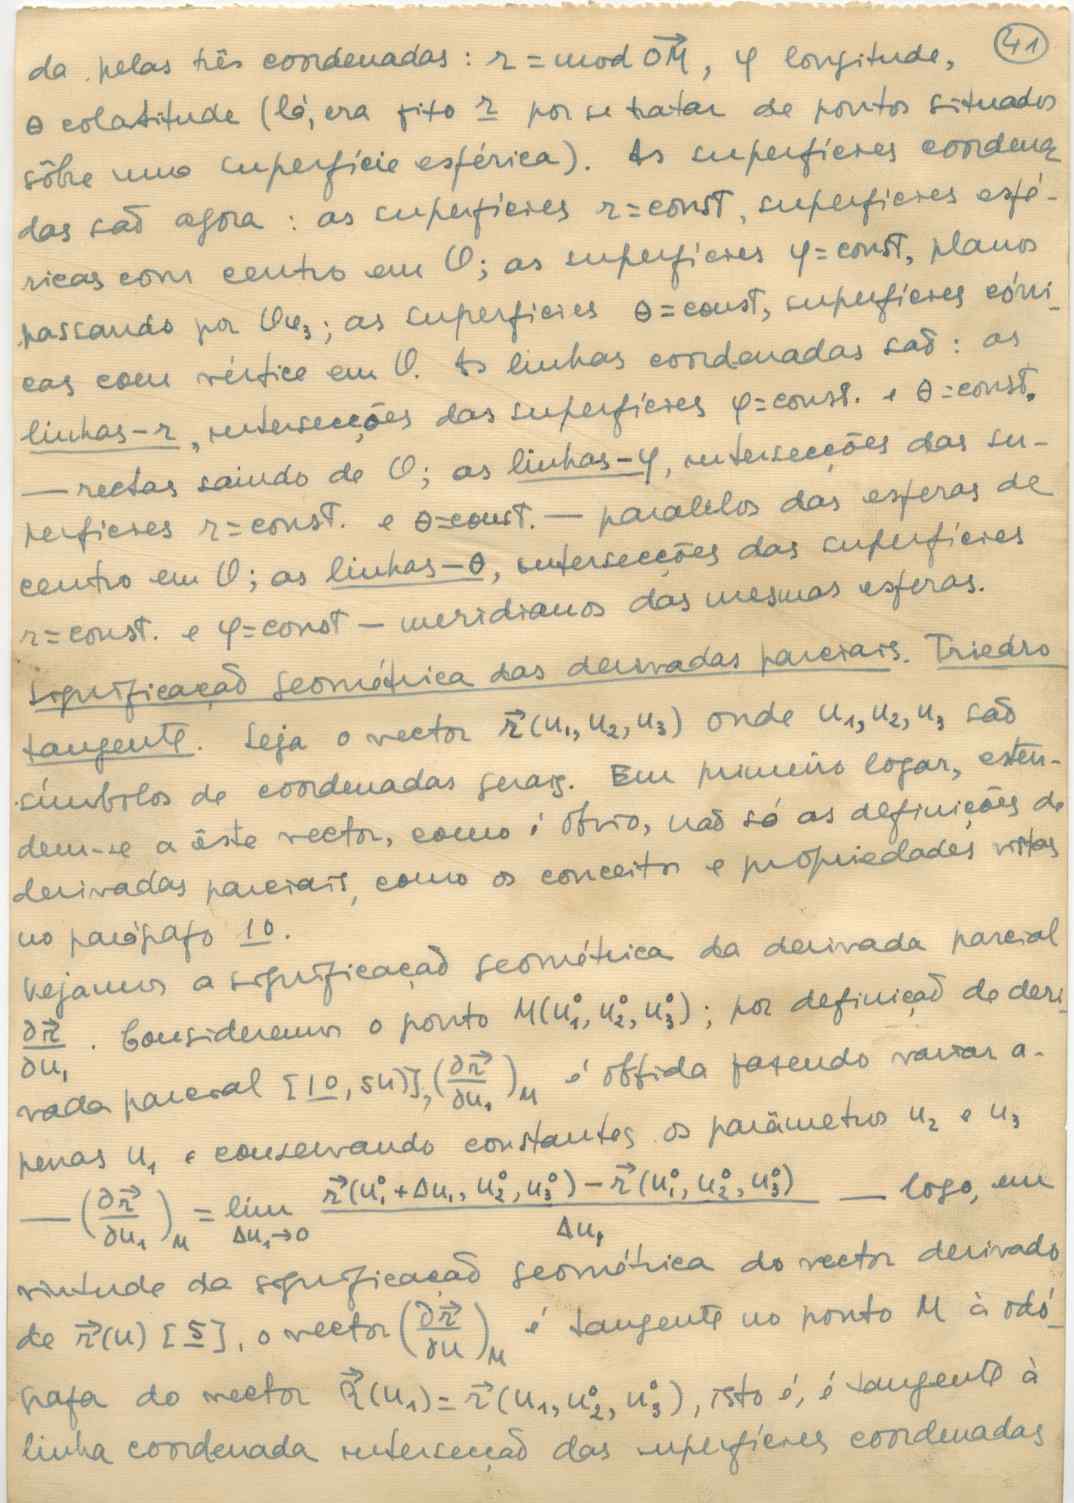 41
da pelas três coordenadas: r = mod OM⃗, φ longitude,
θ colatitude (lá, era fixo r por se tratar de pontos situados
sôbre uma superfície esférica). As superfícies coordena
das são agora: as superfícies r=const, superfícies esfé-
ricas com centro em O; as superfícies φ=const, planos
passando por Ou₃; as superfícies θ=const, superfícies cóni-
cas com vértice em O. As linhas coordenadas são: as
linhas-r, intersecções das superfícies φ=const. e θ=const.
— rectas saindo de O; as linhas-φ, intersecções das su-
perfícies r=const. e θ=const. — paralelos das esferas de
centro em O; as linhas-θ, intersecções das superfícies
r=const. e φ=const — meridianos das mesmas esferas.
Significação geométrica das derivadas parciais. Triedro
tangente. Seja o vector r⃗(u₁,u₂,u₃) onde u₁,u₂,u₃ são
símbolos de coordenadas gerais. Em primeiro logar, esten-
dem-se a êste vector, como é óbvio, não só as definições de
derivadas parciais, como os conceitos e propriedades vistas
no parágrafo 10.
Vejamos a significação geométrica da derivada parcial
∂r⃗/∂u₁. Consideremos o ponto M(u₁°,u₂°,u₃°); por definição de deri-
vada parcial [10, 54)], (∂r⃗/∂u₁)_M é obtida fazendo variar a-
penas u₁ e conservando constantes os parâmetros u₂ e u₃
— (∂r⃗/∂u₁)_M = lim_{Δu₁→0} (r⃗(u₁°+Δu₁, u₂°, u₃°) − r⃗(u₁°, u₂°, u₃°))/Δu₁ — logo, em
virtude da significação geométrica do vector derivado
de r⃗(u) [5], o vector (∂r⃗/∂u)_M é tangente no ponto M à odó-
grafa do vector R⃗(u₁) = r⃗(u₁,u₂°,u₃°), isto é, é tangente à
linha coordenada intersecção das superfícies coordenadas